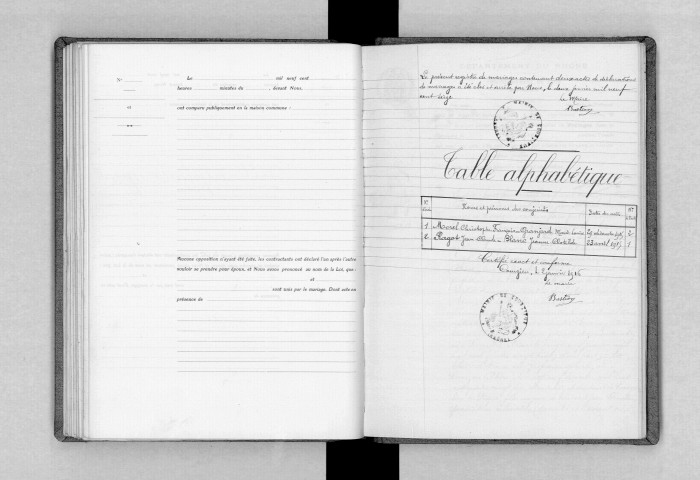 N°
Le mil neuf cent
heures minutes de , devant Nous,
et
ont comparu publiquement en la maison commune :
Aucune opposition n'ayant été faite, les contractants ont déclaré l'un après l'autre
vouloir se prendre pour époux, et Nous avons prononcé au nom de la Loi, que:
et
sont unis par le mariage. Dont acte en
présence de
Le présent registre de mariages contenant deux actes de déclarations
de mariages a été clos et arrêté par Nous, le deux janvier mil neuf
cent seize
Le Maire
Table alphabétique
Noms et prénoms des conjoints Date des actes
1. Morel Christophe François Marie Louise 2
2. Ragot Jean Claude Blanc Jeanne Clotilde 23 avril 1915 1
Certifié exact et conforme
le 2 janvier 1916
Le maire